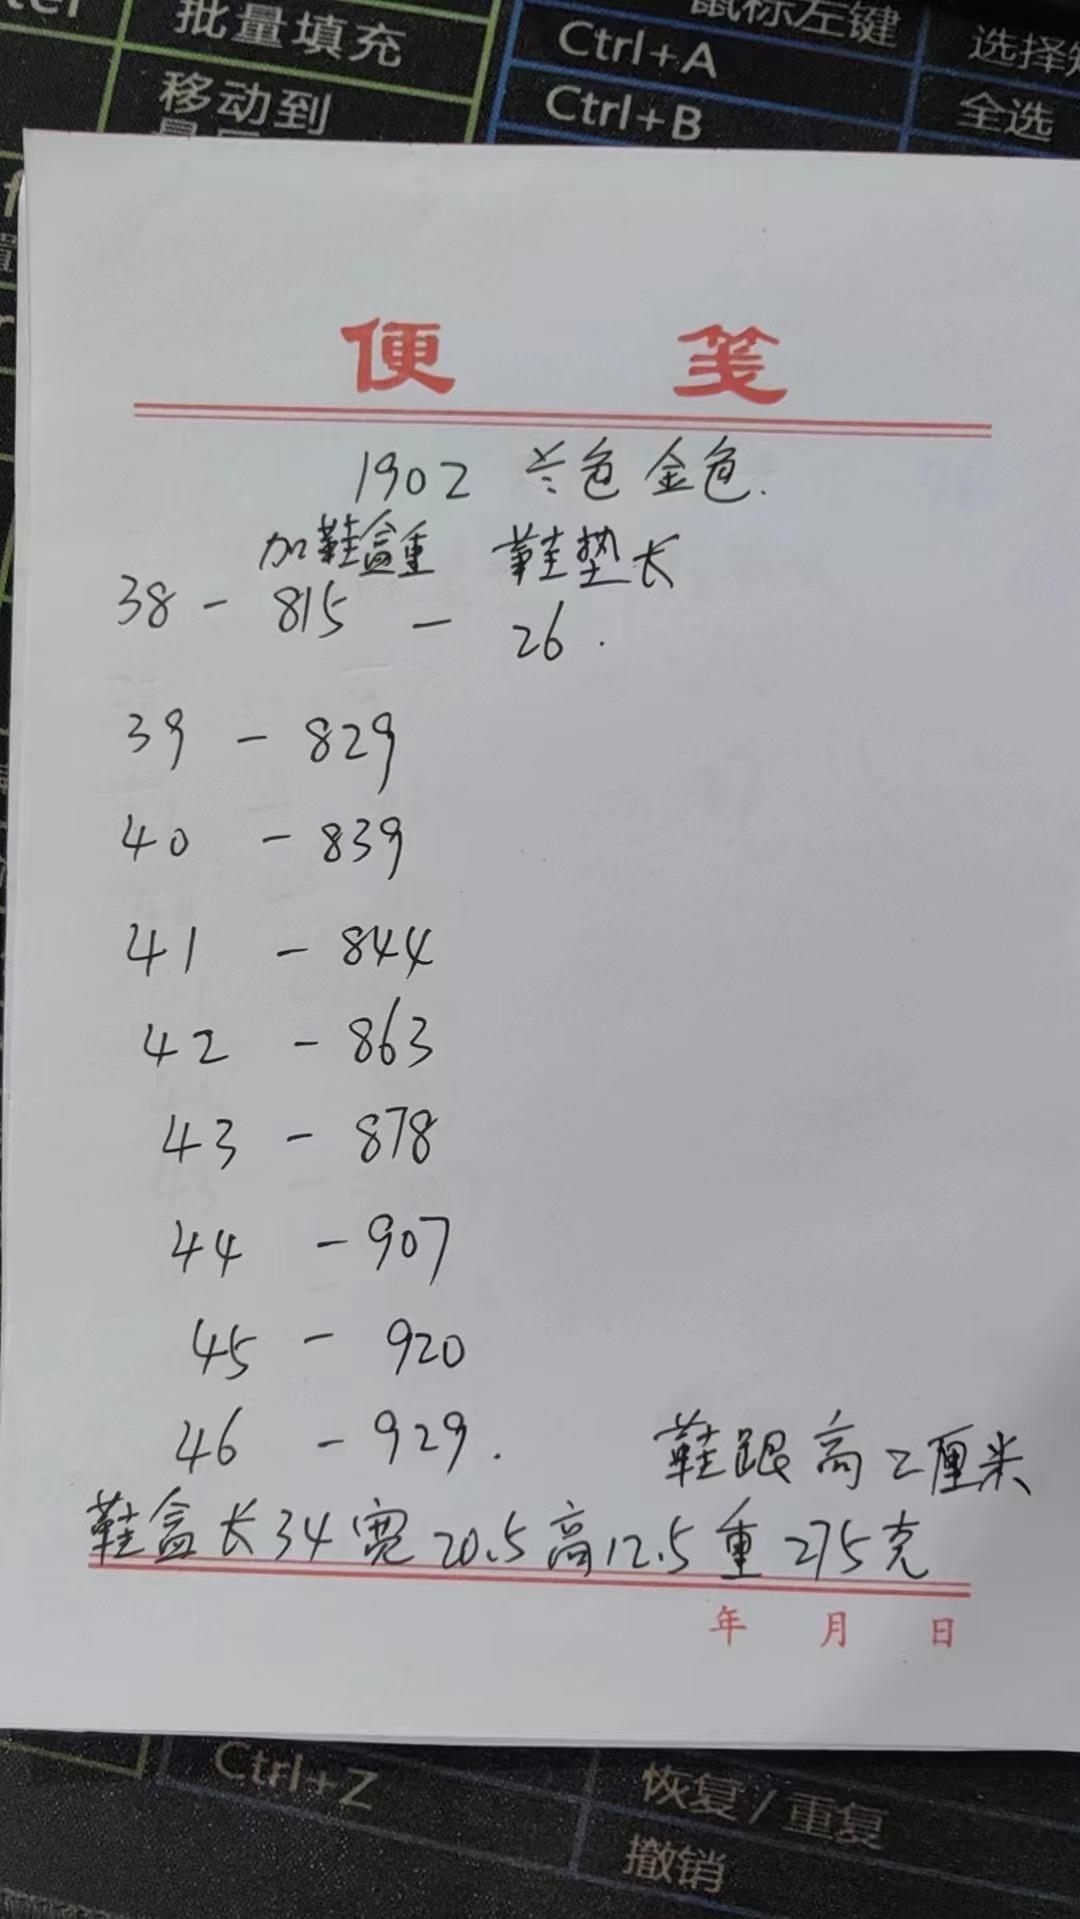 批量填充
鼠标左键
Ctrl+A
选择
移动到
Ctrl+B
全选
便笺
1902 兰色 金色.
加鞋盒重 鞋垫长
38 - 815 - 26.
39 - 829
40 - 839
41 - 844
42 - 863
43 - 878
44 - 907
45 - 920
46 - 929.
鞋跟高2厘米
鞋盒长34宽20.5高12.5重275克
年 月 日
Ctrl+Z
恢复/重复
撤销